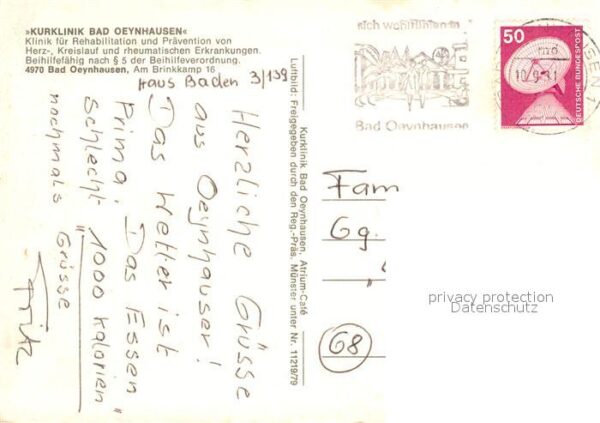 »KURKLINIK BAD OEYNHAUSEN«
Klinik für Rehabilitation und Prävention von
Herz-, Kreislauf und rheumatischen Erkrankungen.
Beihilfefähig nach § 5 der Beihilfeverordnung.
4970 Bad Oeynhausen, Am Brinkkamp 16
Haus Baden 3/139
Herzliche Grüsse
aus Oeynhausen!
Das Wetter ist
Prima, Das Essen
schlecht "1000 Kalorien"
nochmals Grüsse
Fritz
Kurklinik Bad Oeynhausen, Atrium-Café
Luftbild: Freigegeben durch den Reg.-Präs. Münster unter Nr. 11219/79
sich wohlfühlen in
Bad Oeynhausen
10.9.81
50
DEUTSCHE BUNDESPOST
Fam
Gg.
"
68
privacy protection
Datenschutz